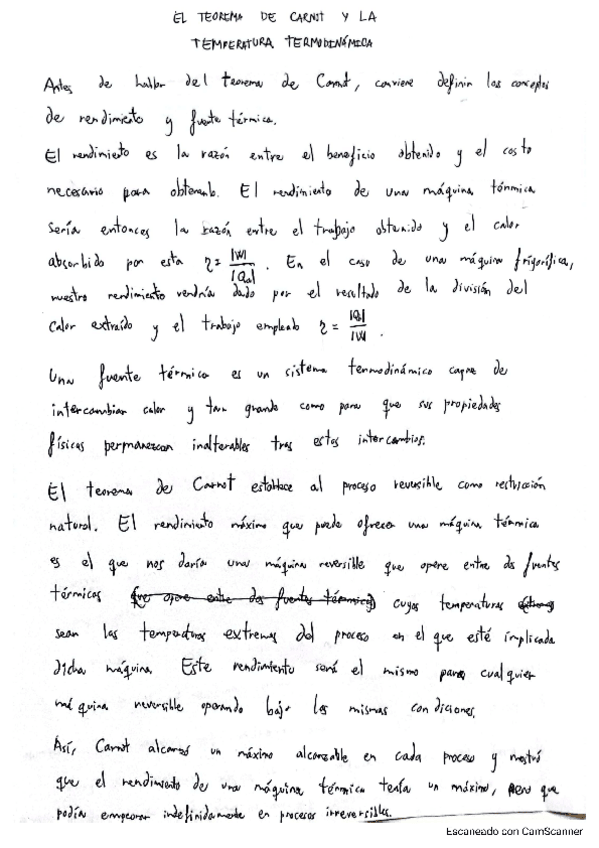 EL TEOREMA DE CARNOT Y LA
TEMPERATURA TERMODINÁMICA
Antes de hablar del teorema de Carnot, conviene definir los conceptos
de rendimiento y fuente térmica.
El rendimiento es la razón entre el beneficio obtenido y el costo
necesario para obtenerlo. El rendimiento de una máquina térmica
sería entonces la razón entre el trabajo obtenido y el calor
absorbido por esta η = |W|/|Qa|. En el caso de una máquina frigorífica,
nuestro rendimiento vendría dado por el resultado de la división del
calor extraído y el trabajo empleado η = |Q|/|W|.
Una fuente térmica es un sistema termodinámico capaz de
intercambiar calor y tan grande como para que sus propiedades
físicas permanezcan inalterables tras estos intercambios.
El teorema de Carnot establece al proceso reversible como restricción
natural. El rendimiento máximo que puede ofrecer una máquina térmica
es el que nos daría una máquina reversible que opere entre dos fuentes
térmicas (que opere entre dos fuentes térmicas) cuyas temperaturas
sean las temperaturas extremas del proceso en el que esté implicada
dicha máquina. Este rendimiento será el mismo para cualquier
máquina reversible operando bajo las mismas condiciones.
Así, Carnot alcanzó un máximo alcanzable en cada proceso y mostró
que el rendimiento de una máquina térmica tenía un máximo, pero que
podía empeorar indefinidamente en procesos irreversibles.
Escaneado con CamScanner